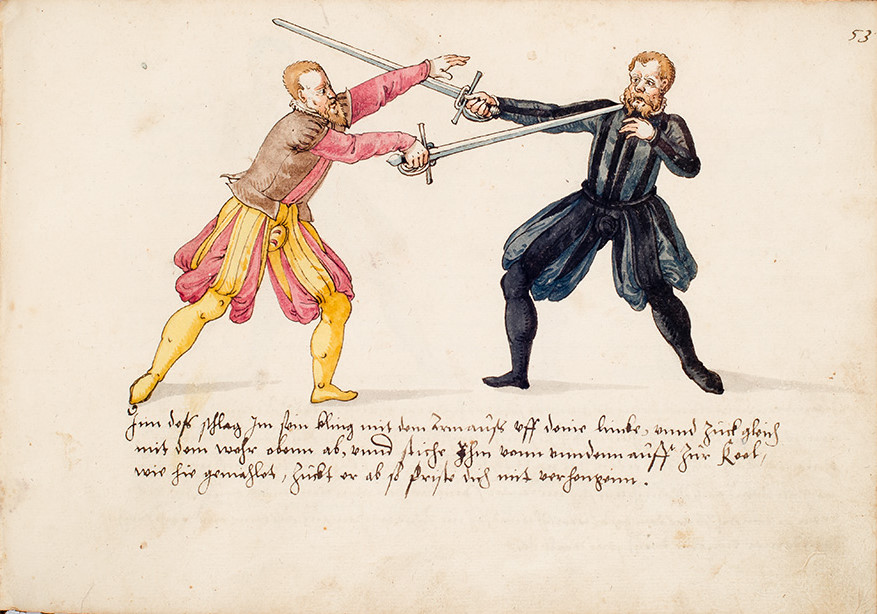 53
Inn dess schlag Im sein kling mit dem Arm auss uff deine lincke, unnd zuck gleich
mit dem wehr obenn ab, unnd stiche Ihm vonn unndenn auff zur Keel,
wie hie gemahlet, Zuckt er ab so friste dich mit verhenngenn.